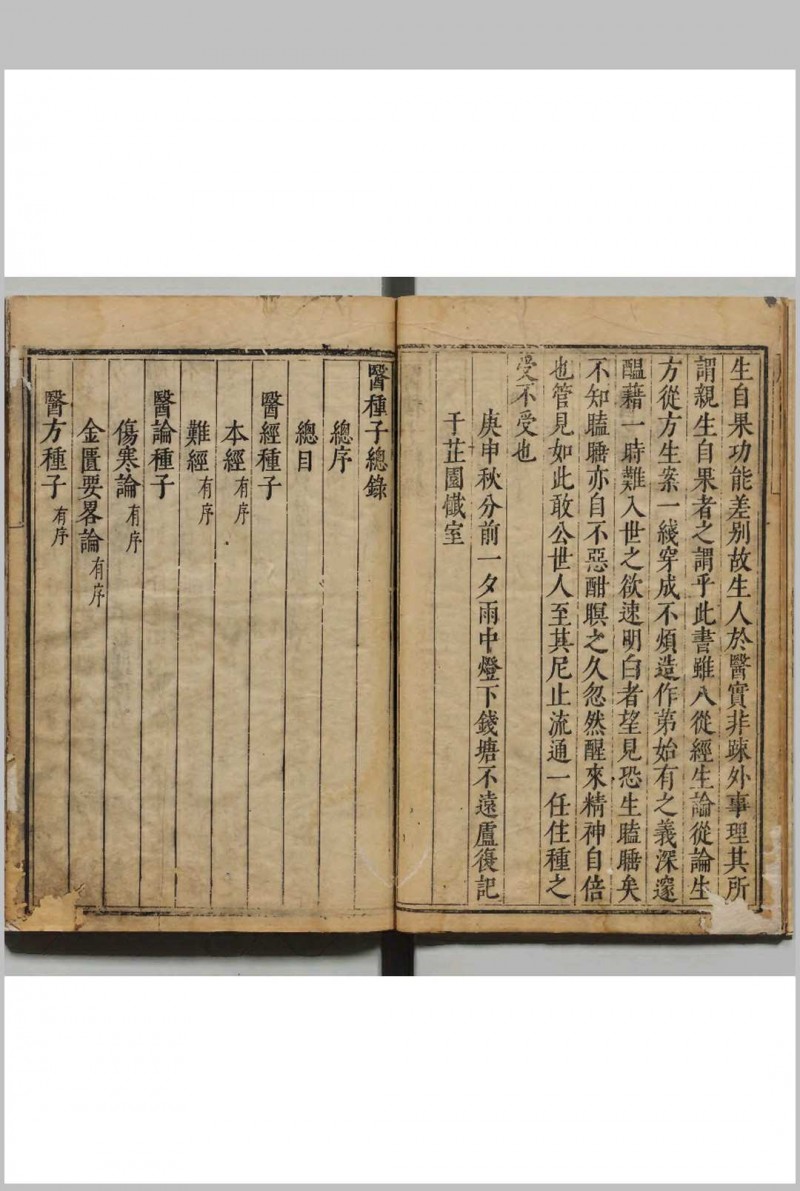 生自果功能差别故生人於醫實非疎外事理其所
謂親生自果者之謂乎此書雖八從經生論從論生
方從方生案一綫穿成不煩造作第始有之義深邃
醞藉一時難入世之欲速明白者望見恐生瞌睡矣
不知瞌睡亦自不惡酣瞑之久忽然醒來精神自倍
也管見如此敢公世人至其尼止流通一任住種之
受不受也
庚申秋分前一夕雨中燈下錢塘不遠盧復記
于芷園懺室
醫種子總錄
總序
總目
醫經種子
本經有序
難經有序
醫論種子
傷寒論有序
金匱要畧論有序
醫方種子有序